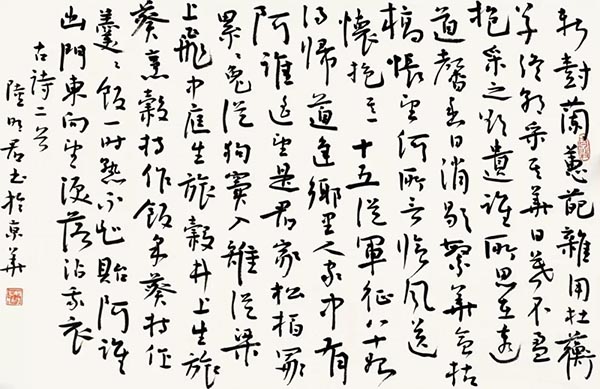 新樹蘭蕙葩雜用杜蘅
草終朝采其華日暮不盈
抱采之欲遺誰所思在遠
道馨香易消歇繁華會枯
槁悵望何所言臨風送
懷抱 十五從軍征八十始
得歸道逢鄉里人家中有
阿誰遥望是君家松柏冢
累〻兔從狗竇入雉從梁
上飛中庭生旅穀井上生旅
葵烹穀持作飯采葵持作
羹〻飯一時熟不知貽阿誰
出門東向望淚落沾我衣
古詩二首
陸明君書於京華